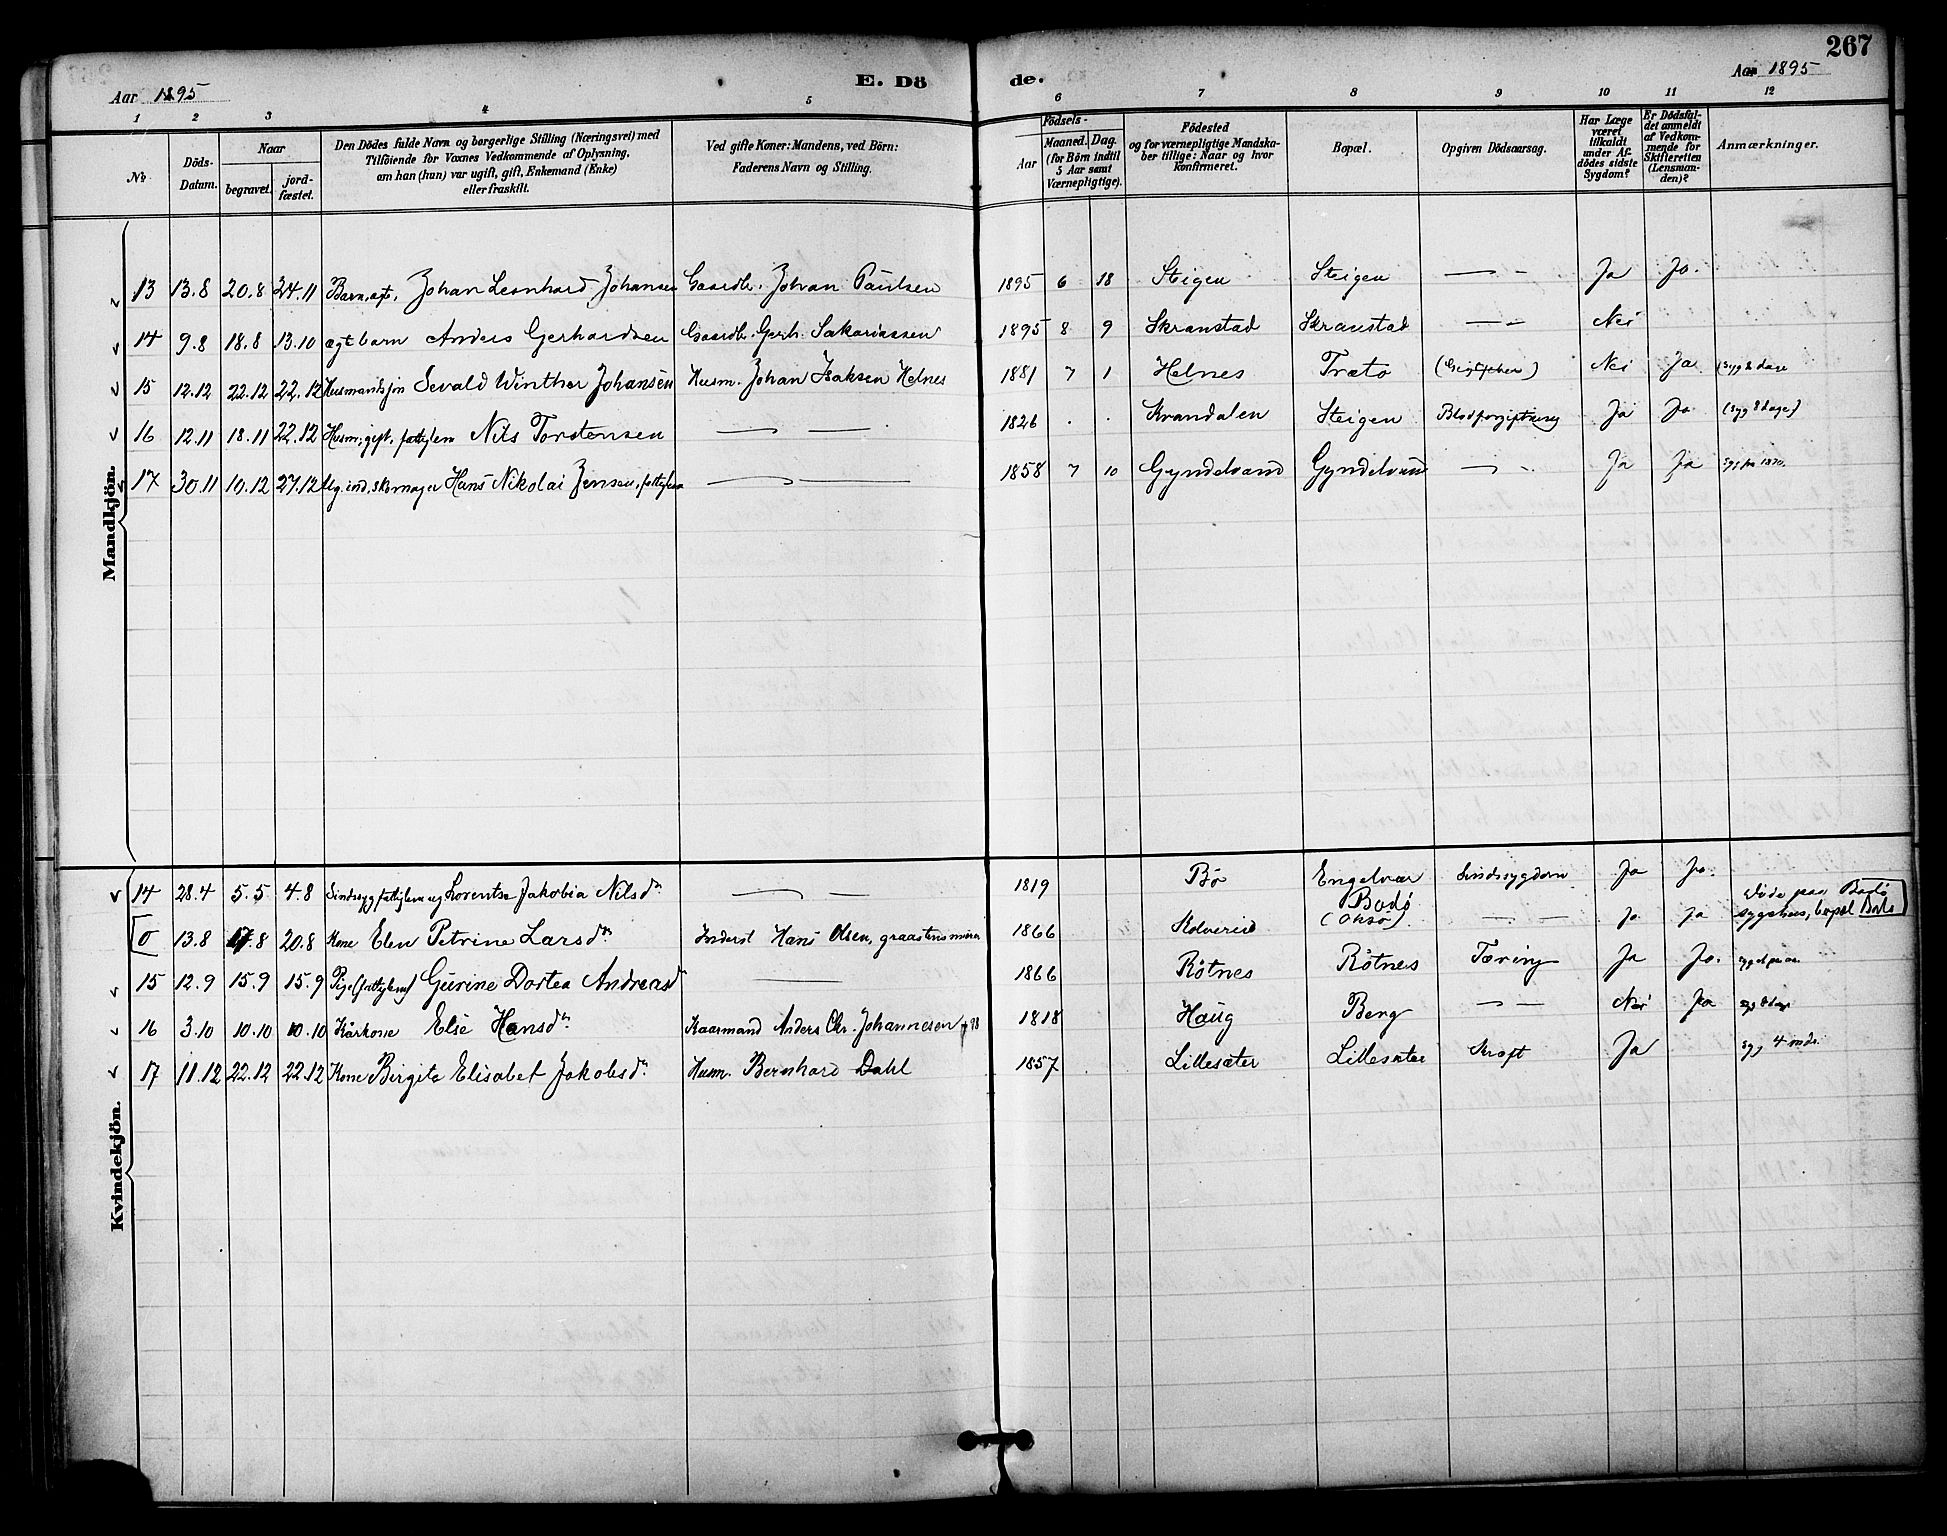 267
Aar 1895
E. Dö
de.
Aar 1895
1 2 3 4 5 6 7 8 9 10 11 12
No
Döds-Datum.
Naar
begravet.
jord-fæstet.
Den Dödes fulde Navn og borgerlige Stilling (Næringsvei) med
Tilföiende for Voxnes Vedkommende af Oplysning,
om han (hun) var ugift, gift, Enkemand (Enke)
eller fraskilt.
Ved gifte Koner: Mandens, ved Börn:
Faderens Navn og Stilling.
Födsels-
Aar
Maaned. Dag.
(for Börn indtil
5 Aar samt
Værnepligtige).
Födested
og for værnepligtige Mandska-
ber tillige: Naar og hvor
konfirmeret.
Bopæl.
Opgiven Dödsaarsag.
Har Læge
været
tilkaldt
under Af-
dödes sidste
Sygdom?
Er Dödsfal-
det anmeldt
af Vedkom-
mende for
Skifteretten
(Lensman-
den)?
Anmærkninger.
Mandkjön.
13 13.8 20.8 24.11 Barn, ægt, Johan Leonhard Johansen Gaardb. Johan Paulsen 1895 6 18 Steigen Steigen — - Ja Ja.
14 9.8 18.8 13.10 ægt barn Anders Gerhardsen Gaardb. Gerh. Sakariassen 1895 8 9 Skranstad Skranstad — - Nei
15 12.12 22.12 22.12 Husmandssøn Sevald Winther Johansen Husm. Johan Isaksen Helnes 1881 7 1 Helnes Trætø Nei Ja (syg 8 dage
16 12.11 18.11 22.12 Husm., gift, fattiglem Nils Torstensen — — 1826 . . Krandalen Steigen Blodforgiftning Ja Ja (syg 8 dage)
17 30.11 10.12 27.12 Ug. ind, skomager Hans Nikolai Jensen, fattiglem — — 1858 7 10 Gyndelvand Gyndelvand — - Ja Ja
Kvindekjön.
14 28.4 5.5 4.8 Sindssyg fattiglem ug Lorentse Jakobia Nilsd. — — 1819 Bø Engelvær Sindssygdom Ja Ja.
0 13.8 17.8 20.8 Kone Elen Petrine Larsd. Inderst Hans Olsen, graastensmurer 1866 Kolvereid Bodø (Oksø). — - Ja Ja Døde paa Bodø sygehus, bopæl Bodø
15 12.9 15.9 15.9 Pige (fattiglem) Gurine Dortea Andreasd. — 1866 Røtnes Røtnes Tæring Ja Ja.
16 3.10 10.10 10.10 Kårkone Else Hansd. Kaarmand Anders Chr. Johannesen 1818 Haug Berg — - Nei Ja syg 8 dage
17 11.12 22.12 22.12 Kone Birgite Elisabet Jakobsd. Husm. Bernhard Dahl 1857 Lillesæter Lillesæter Kræft Ja syg 4 mdr.